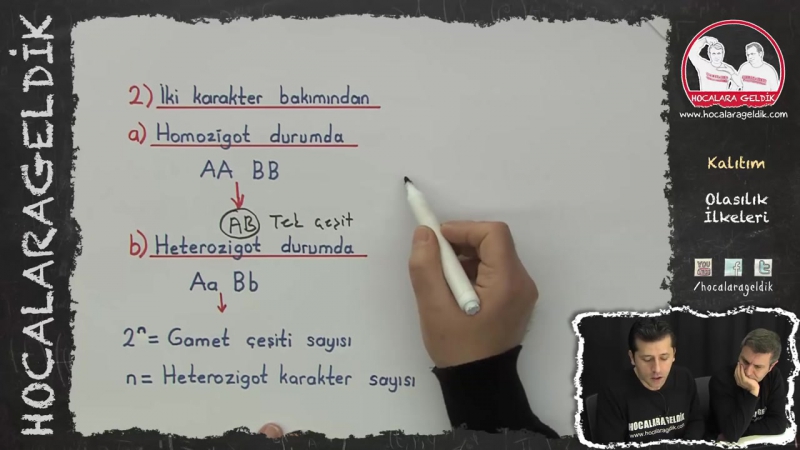 HOCALARAGELDİK
2) İki karakter bakımından
a) Homozigot durumda
AA BB
AB Tek çeşit
b) Heterozigot durumda
Aa Bb
2ⁿ = Gamet çeşiti sayısı
n = Heterozigot karakter sayısı
HOCALARA GELDİK
www.hocalarageldik.com
Kalıtım
Olasılık
İlkeleri
YOU
f
t
/hocalarageldik
HOCALARGELDİK
www.hocalarageldik.com